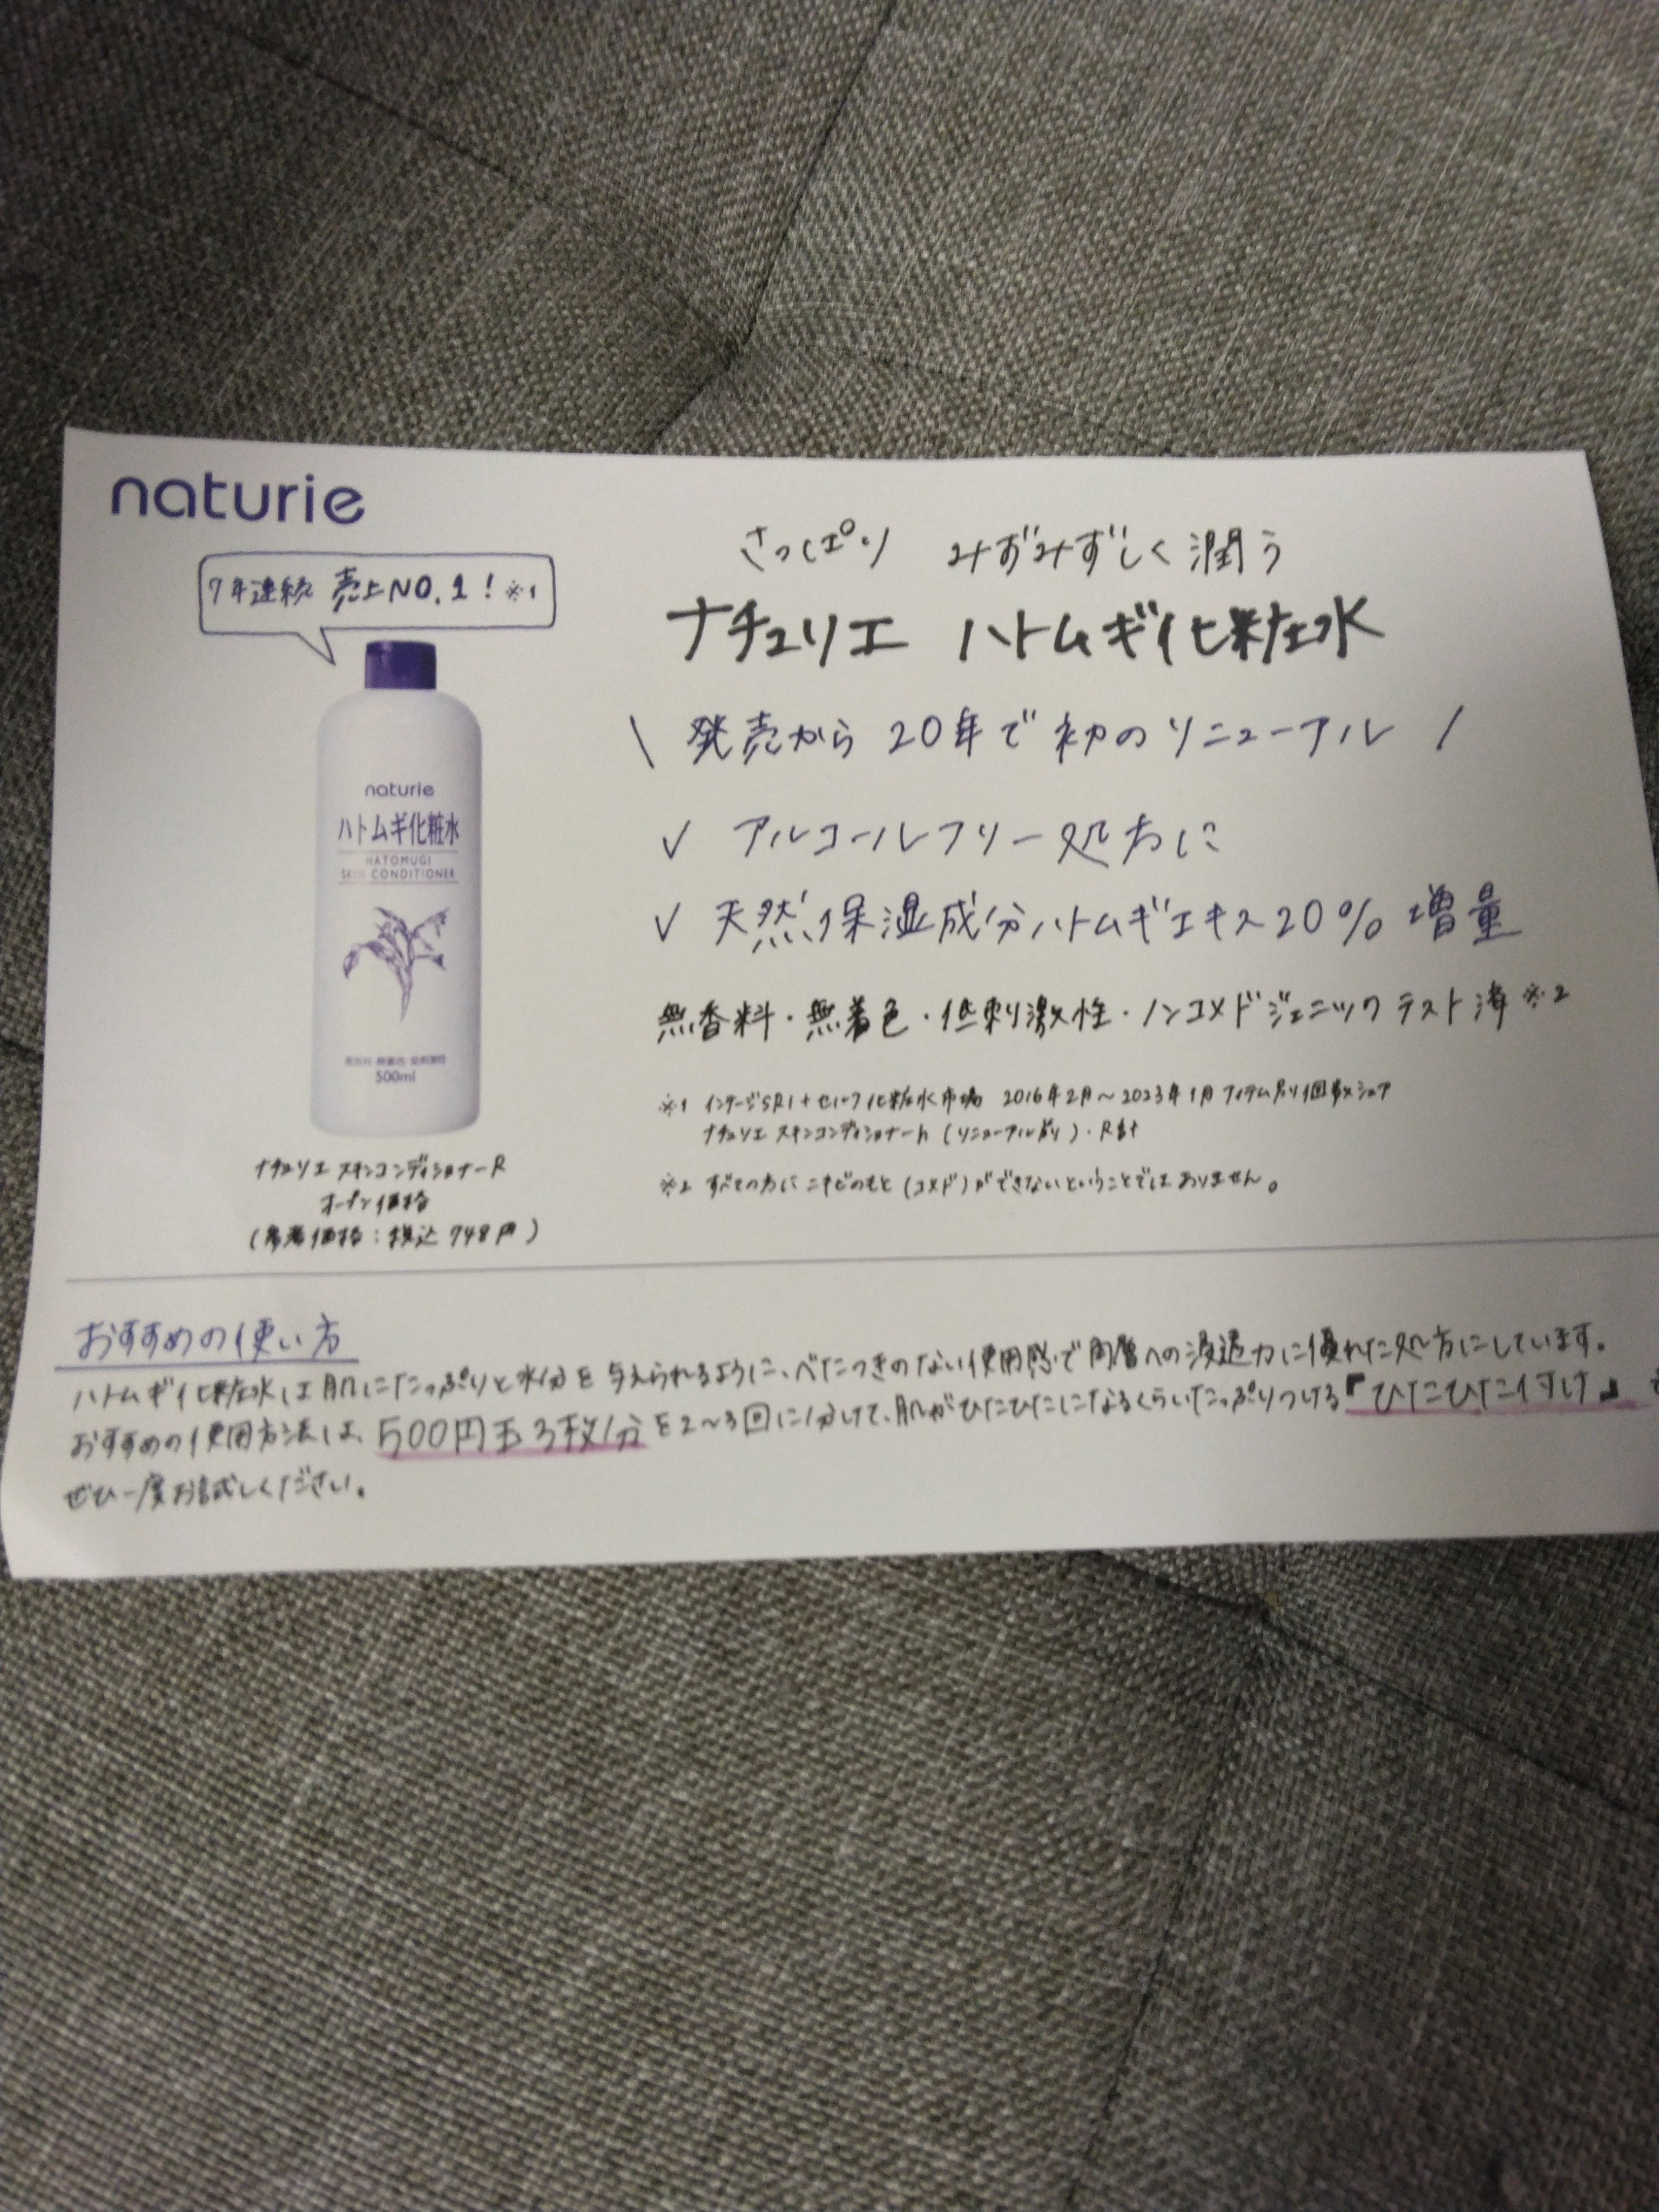 naturie
7年連続 売上NO.1！※1
naturie
ハトムギ化粧水
HATOMUGI
SKIN CONDITIONER
無香料・無着色・低刺激性
500ml
ナチュリエ スキンコンディショナーR
オープン価格
(参考価格：税込748円)
さっぱり みずみずしく潤う
ナチュリエ ハトムギ化粧水
\ 発売から20年で初のリニューアル /
✓ アルコールフリー処方に
✓ 天然保湿成分ハトムギエキス20%増量
無香料・無着色・低刺激性・ノンコメドジェニックテスト済※2
※1 インテージSRI+セルフ化粧水市場 2016年2月～2023年1月 アイテム別個数シェア
ナチュリエ スキンコンディショナーh (リニューアル前)・R計
※2 すべての方にニキビのもと(コメド)ができないということではありません。
おすすめの使い方
ハトムギ化粧水は肌にたっぷりと水分を与えられるように、べたつきのない使用感で角層への浸透力に優れた処方にしています。
おすすめの使用方法は、500円玉3枚分を2～3回に分けて、肌がひたひたになるくらいたっぷりつける『ひたひた付け』
ぜひ一度お試しください。